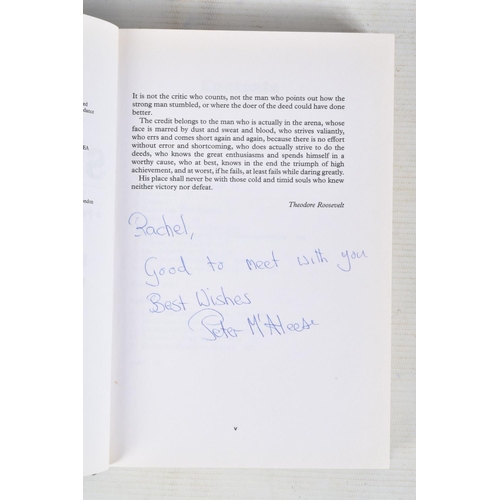 It is not the critic who counts, not the man who points out how the
strong man stumbled, or where the doer of the deed could have done
better.
The credit belongs to the man who is actually in the arena, whose
face is marred by dust and sweat and blood, who strives valiantly,
who errs and comes short again and again, because there is no effort
without error and shortcoming, who does actually strive to do the
deeds, who knows the great enthusiasms and spends himself in a
worthy cause, who at best, knows in the end the triumph of high
achievement, and at worst, if he fails, at least fails while daring greatly.
His place shall never be with those cold and timid souls who knew
neither victory nor defeat.
Theodore Roosevelt
Rachel,
Good to meet with you
Best Wishes
Peter M'Aleese
v